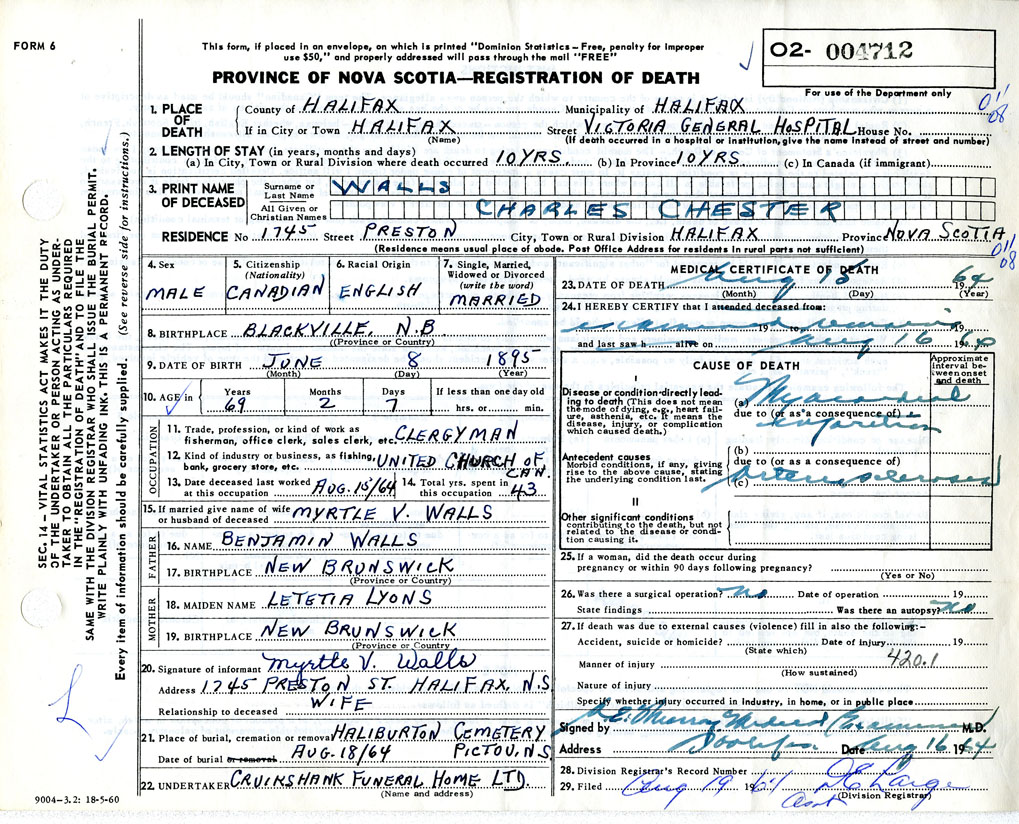 FORM 6
This form, if placed in an envelope, on which is printed "Dominion Statistics – Free, penalty for improper
use $50," and properly addressed will pass through the mail "FREE"
PROVINCE OF NOVA SCOTIA—REGISTRATION OF DEATH
O2- 004712
For use of the Department only
011
08
1. PLACE OF DEATH County of HALIFAX Municipality of HALIFAX
If in City or Town HALIFAX Street VICTORIA GENERAL HOSPITAL House No.
(Name) (If death occurred in a hospital or institution, give the name instead of street and number)
2. LENGTH OF STAY (in years, months and days)
(a) In City, Town or Rural Division where death occurred 10 YRS. (b) In Province 10 YRS. (c) In Canada (if immigrant)
3. PRINT NAME OF DECEASED
Surname or Last Name WALLS
All Given or Christian Names CHARLES CHESTER
RESIDENCE No 1745 Street PRESTON City, Town or Rural Division HALIFAX Province NOVA SCOTIA
(Residence means usual place of abode. Post Office Address for residents in rural parts not sufficient)
011
08
4. Sex MALE
5. Citizenship (Nationality) CANADIAN
6. Racial Origin ENGLISH
7. Single, Married, Widowed or Divorced (write the word) MARRIED
8. BIRTHPLACE BLACKVILLE, N.B
(Province or Country)
9. DATE OF BIRTH JUNE 8 1895
(Month) (Day) (Year)
10. AGE in Years 69 Months 2 Days 7 If less than one day old hrs. or min.
OCCUPATION
11. Trade, profession, or kind of work as fisherman, office clerk, sales clerk, etc. CLERGYMAN
12. Kind of industry or business, as fishing, bank, grocery store, etc. UNITED CHURCH OF CAN.
13. Date deceased last worked at this occupation AUG. 15/64 14. Total yrs. spent in this occupation 43
15. If married give name of wife or husband of deceased MYRTLE V. WALLS
FATHER
16. NAME BENJAMIN WALLS
17. BIRTHPLACE NEW BRUNSWICK
(Province or Country)
MOTHER
18. MAIDEN NAME LETETIA LYONS
19. BIRTHPLACE NEW BRUNSWICK
(Province or Country)
20. Signature of informant Myrtle V. Walls
Address 1745 PRESTON ST. HALIFAX, N.S.
Relationship to deceased WIFE
21. Place of burial, cremation or removal HALIBURTON CEMETERY
Date of burial or removal AUG. 18/64 PICTOU, N.S.
22. UNDERTAKER CRUIKSHANK FUNERAL HOME LTD.
(Name and address)
9004–3.2: 18-5-60
MEDICAL CERTIFICATE OF DEATH
23. DATE OF DEATH Aug 15 64
(Month) (Day) (Year)
24. I HEREBY CERTIFY that I attended deceased from:
examined 19 to remains 19
and last saw h alive on Aug 16 19
CAUSE OF DEATH
Approximate interval between onset and death
I
Disease or condition directly leading to death (This does not mean the mode of dying, e.g., heart failure, asthenia, etc. It means the disease, injury, or complication which caused death.)
(a) Myocardial
due to (or as a consequence of)
infarction
Antecedent causes
Morbid conditions, if any, giving rise to the above cause, stating the underlying condition last.
(b)
due to (or as a consequence of)
(c) Arteriosclerosis
II
Other significant conditions
contributing to the death, but not related to the disease or condition causing it.
25. If a woman, did the death occur during
pregnancy or within 90 days following pregnancy?
(Yes or No)
26. Was there a surgical operation? No Date of operation 19
State findings Was there an autopsy? No
27. If death was due to external causes (violence) fill in also the following:–
Accident, suicide or homicide? Date of injury 19
(State which)
420.1
Manner of injury
(How sustained)
Nature of injury
Specify whether injury occurred in Industry, in home, or in public place
Signed by Murray Medical Examiner M.D.
Address Date Aug 16 1964
28. Division Registrar's Record Number
29. Filed Aug 19 1964 Large
Asst (Division Registrar)
SEC. 14 – VITAL STATISTICS ACT MAKES IT THE DUTY
OF THE UNDERTAKER OR PERSON ACTING AS UNDER-
TAKER TO OBTAIN ALL THE PARTICULARS REQUIRED
IN THE "REGISTRATION OF DEATH" AND TO FILE THE
SAME WITH THE DIVISION REGISTRAR WHO SHALL ISSUE THE BURIAL PERMIT.
WRITE PLAINLY WITH UNFADING INK. THIS IS A PERMANENT RECORD.
Every item of information should be carefully supplied. (See reverse side for instructions.)